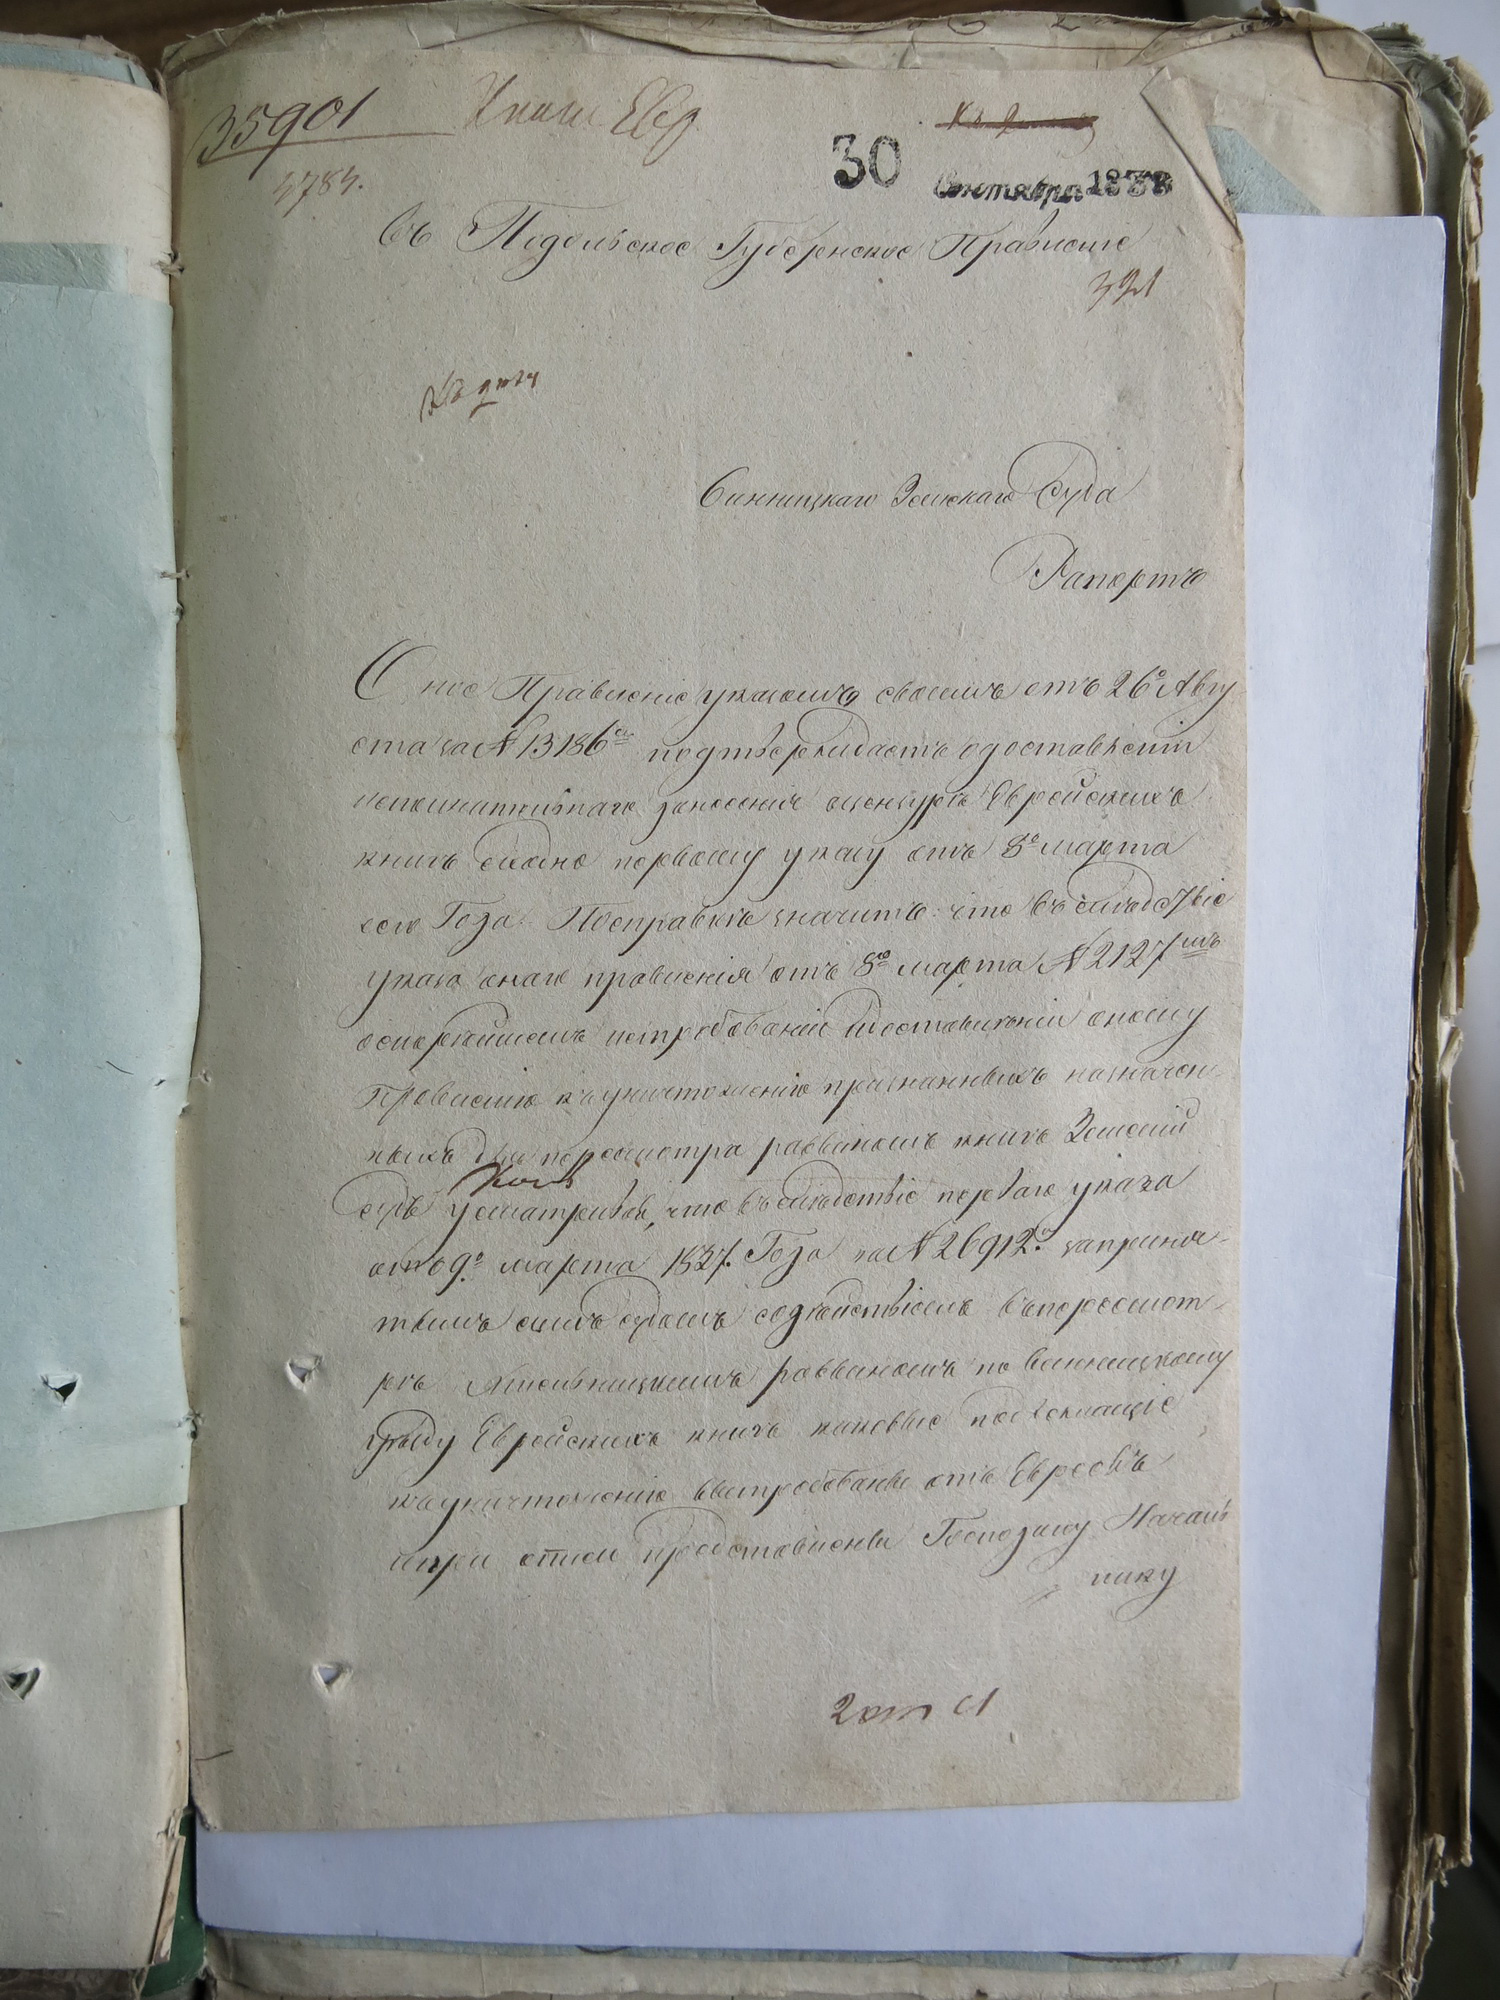 35901
30 Сентября 1838
3783.
Въ Подольское Губернское Правленіе
321
Къ делу
Винницкаго Земскаго Суда
Рапортъ
Оное Правленіе указомъ своимъ отъ 26го Авгу
ста за № 13186мъ подтверждаетъ о доставленіи
занесенія цензуре Еврейскихъ
книгъ первому указу отъ 8го марта
сего Года. По справке значитъ: что въ следствіе
указа онаго правленія отъ 8го марта № 2127мъ
о истребованіи и доставленіи оному
Правленію къ уничтоженію признанныхъ назначен-
ныхъ для пересмотра раввиномъ книгъ Земскій
Судъ усматривая, что въ следствіе перваго указа
отъ 9го марта 1837. Года за № 26912. заприня-
тымъ симъ Судомъ содействіемъ въ пересмот-
ре раввиномъ по Винницкому
уезду Еврейскихъ книгъ каковые подлежащіе
къ уничтоженію вытребованы отъ Евреевъ
и при описи представлены Господину Началь
нику